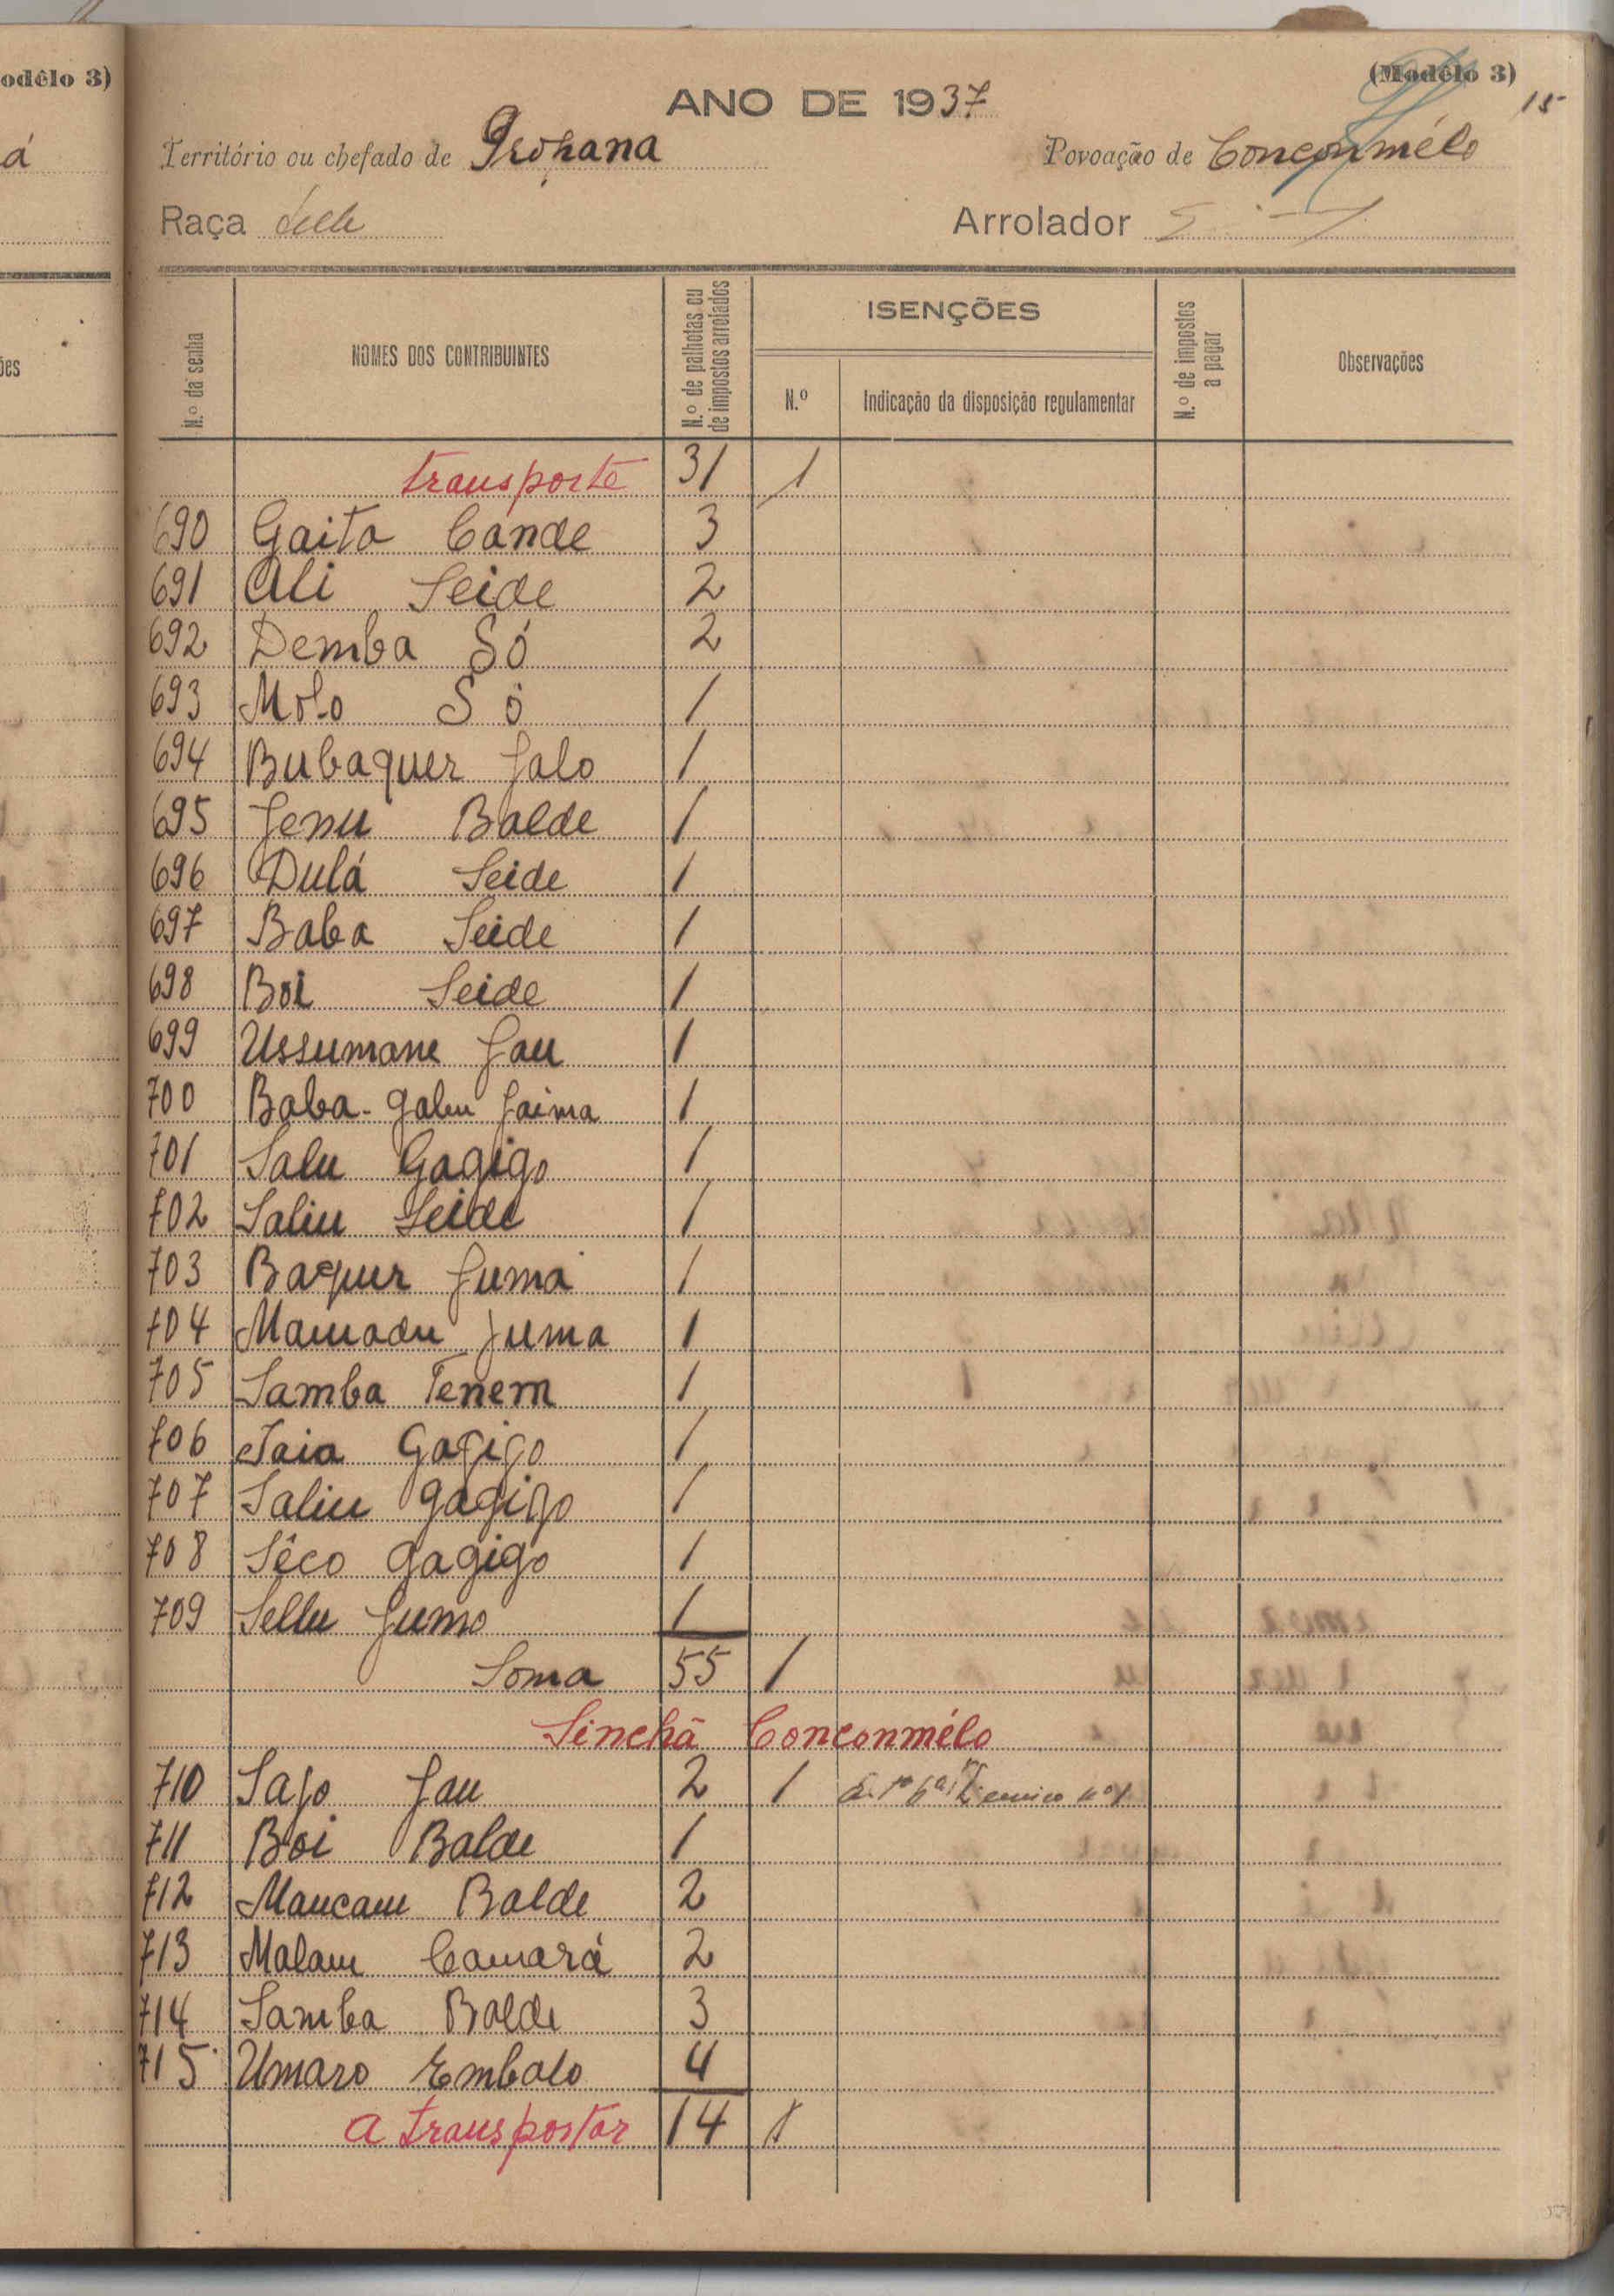 odêlo 3)
á
ões
(Modêlo 3)
15
ANO DE 1937
Território ou chefado de Prohana
Povoação de Conconmélo
Raça
Arrolador
N.º da senha
NOMES DOS CONTRIBUINTES
N.º de palhotas ou de impostos arrolados
ISENÇÕES
N.º
Indicação da disposição regulamentar
N.º de impostos a pagar
Observações
transporte 31 1
690 Gaita Cande 3
691 Ali Seide 2
692 Demba Só 2
693 Molo Só 1
694 Bubaquer Jalo 1
695 Jenu Balde 1
696 Dulá Seide 1
697 Baba Seide 1
698 Boi Seide 1
699 Ussumane Jau 1
700 Baba-Galu Jaima 1
701 Salu Gagigo 1
702 Saliu Seide 1
703 Baquer Juma 1
704 Mamadu Juma 1
705 Samba Tenem 1
706 Jaia Gagigo 1
707 Saliu Gagigo 1
708 Sêco Gagigo 1
709 Sellu Jumo 1
Soma 55 1
Sinchã Conconmélo
710 Sajo Jau 2 1
711 Boi Balde 1
712 Mancam Balde 2
713 Malam Camará 2
714 Samba Balde 3
715 Umaro Embalo 4
a transportar 14 1